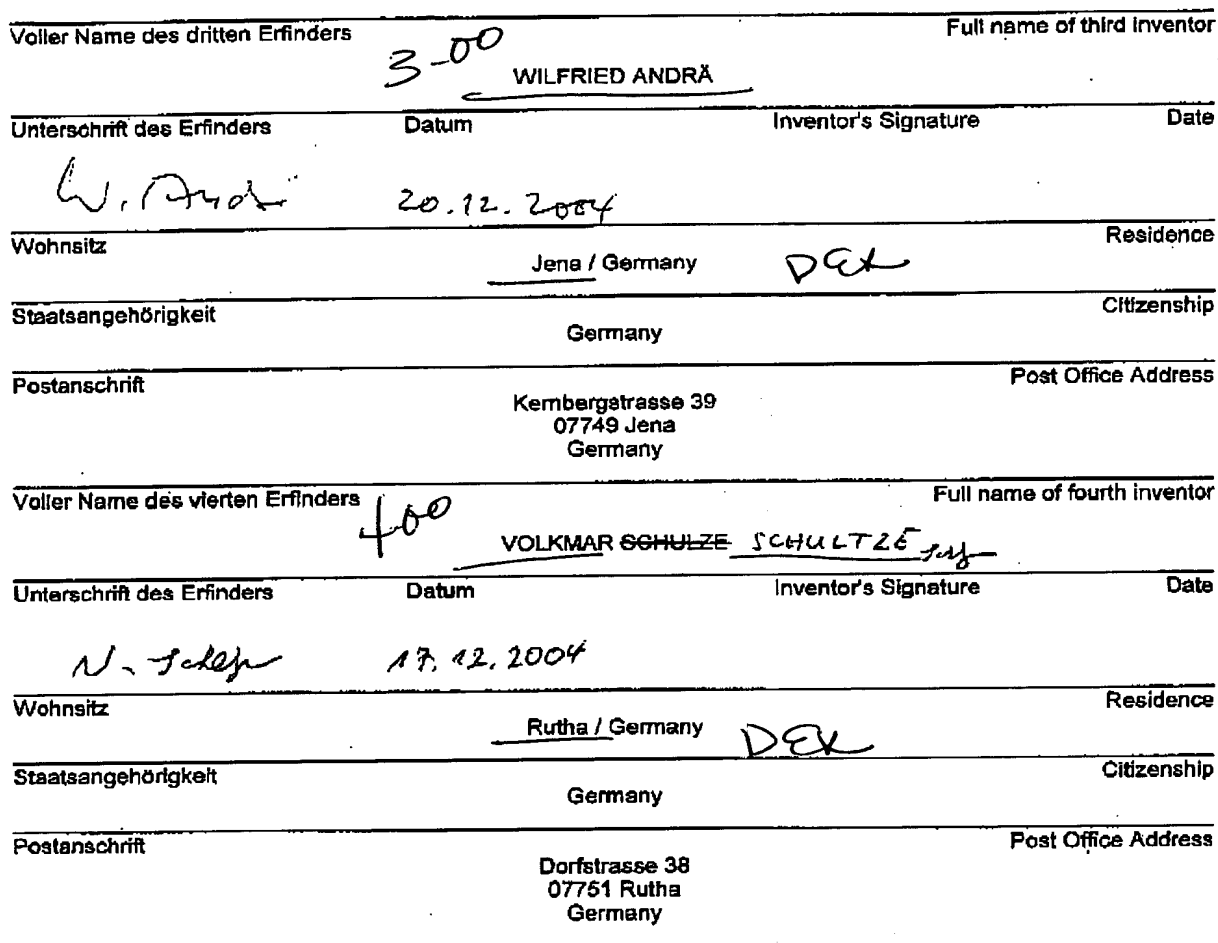 Voller Name des dritten Erfinders Full name of third inventor
3-00
WILFRIED ANDRÄ
Unterschrift des Erfinders Datum Inventor's Signature Date
W. Andrä 20.12.2004
Wohnsitz Residence
Jena / Germany DEX
Staatsangehörigkeit Citizenship
Germany
Postanschrift Post Office Address
Kernbergstrasse 39
07749 Jena
Germany
Voller Name des vierten Erfinders Full name of fourth inventor
400
VOLKMAR SCHULZE SCHULTZE
Unterschrift des Erfinders Datum Inventor's Signature Date
17.12.2004
Wohnsitz Residence
Rutha / Germany DEX
Staatsangehörigkeit Citizenship
Germany
Postanschrift Post Office Address
Dorfstrasse 38
07751 Rutha
Germany